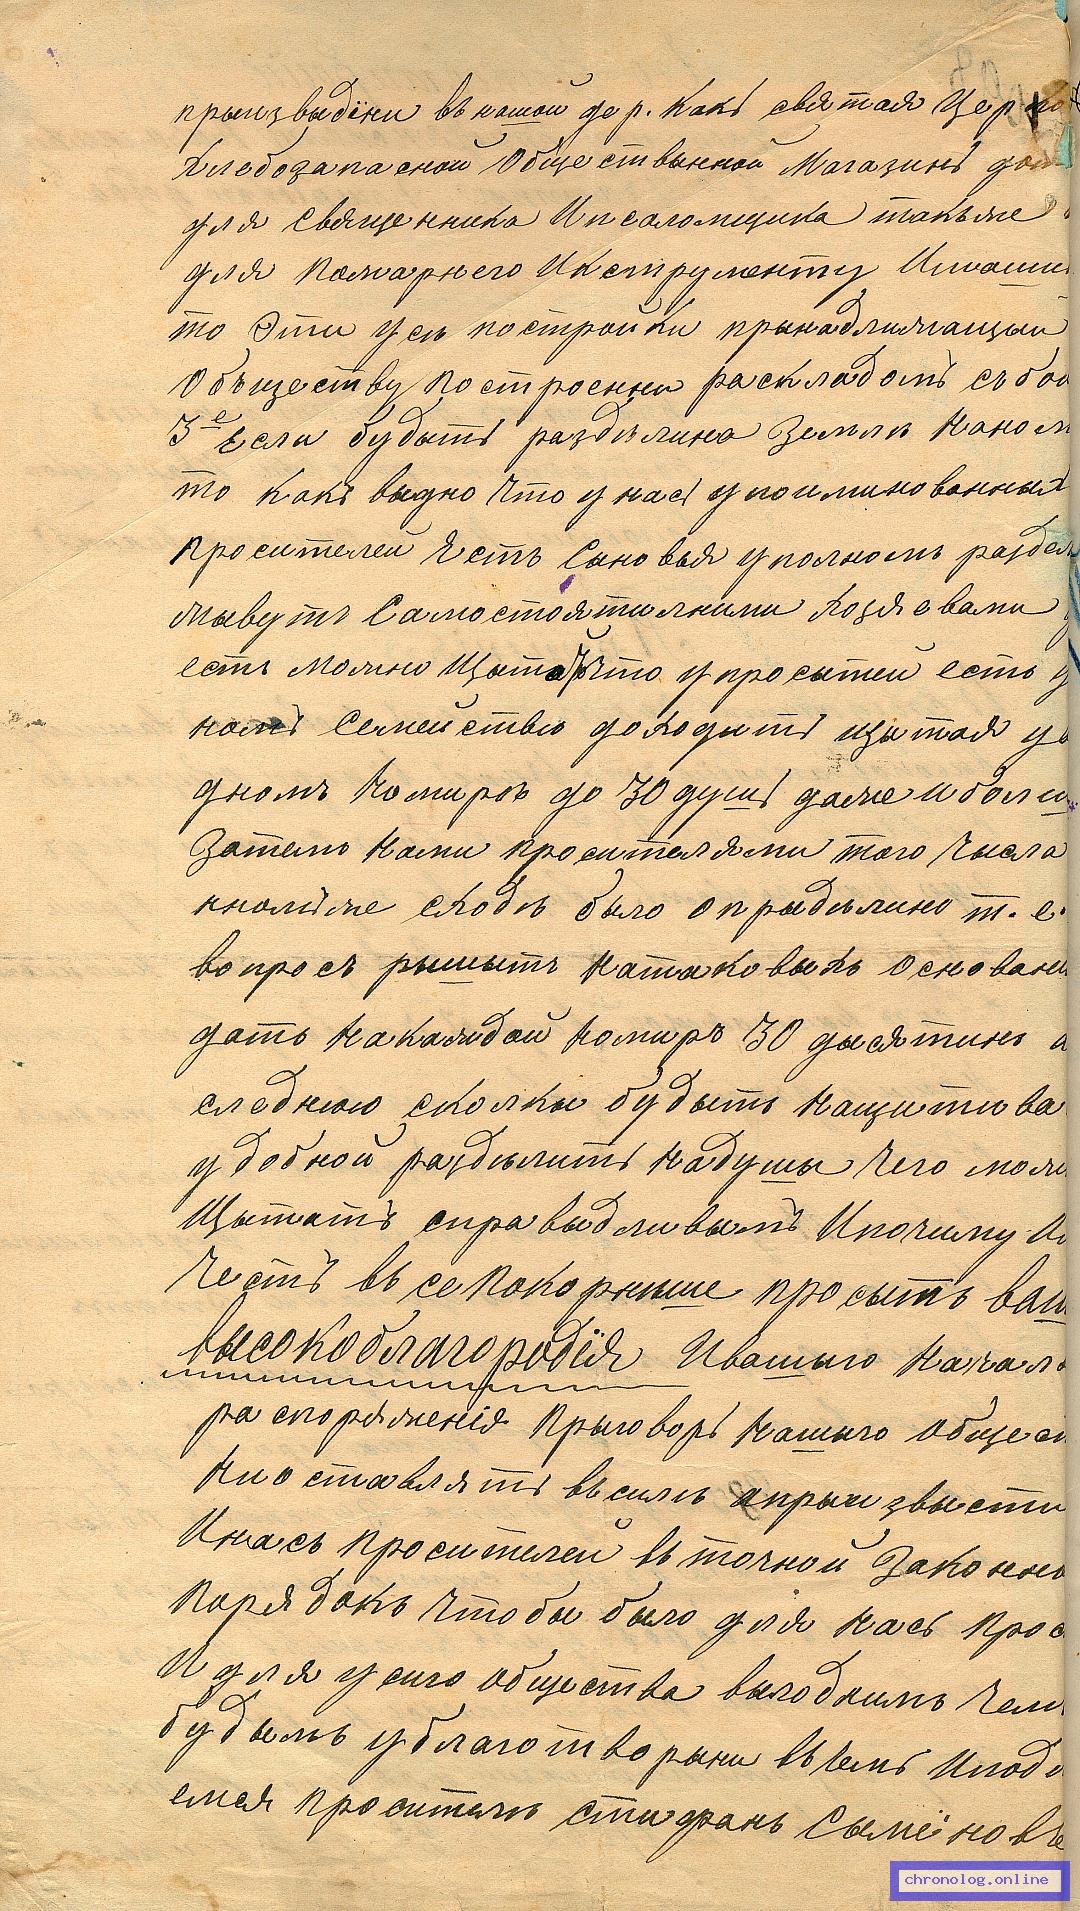 прыизвыдёни въ нашой дер. Какъ святая Церко
Хлебозапасной Общественной Магазинъ дом
для священника Ипсаломщика такъже
для Пожарнего Инструменту Имаши
то Эти усъ постройки прынадлижащыи
Обьществу построенни раскладомъ съ бои
3е Если будыть раздѣлина Земля Наном
то какъ выдно Что унась упоиминованныхъ
Просителей Есть Сыновья уполномъ раздел
Жывуть Самостоятилними Хозяевами
есть можно Щытать Что упросытей есть у
номъ Семействѣ доходить щытая уо
дномъ Номирѣ до 30 душъ даже иболи
Затемъ Нами Просителями того Числа
нномъже сходѣ было опрыдѣлино т. е.
вопросъ рышыть Натаковыхъ Основани
дать Накаждой Номиръ 30 дысятинъ а
следнюю сколки будыть Нащитива
удобной раздѣлить Надушы Чего мож
Щытать справыдливымъ Ипочиму И
Честь въсепокорныше просыть ваш
высокоблагородїя Ивашыго Начал
распоряженія Прыговоръ Нашыго Общест
Ниоставлять въсилѣ апрыизвысти
Инась Просителей въточной Законно
Порядокъ Чтобы было для Нась Прос
И для усиго общества выгоднимъ Чем
будымъ ублаготворыни въчемъ Иподп
емся Проситель стифанъ Сымёновъ
chronolog.online